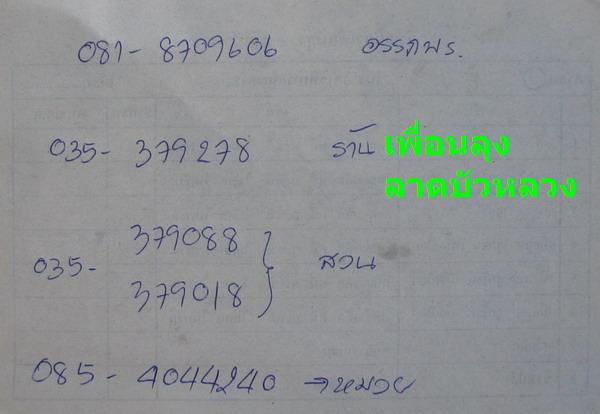 081- 8709606 อรรถพร.
035- 379278 ร้าน เพื่อนลุง
ลาดบัวหลวง
379088
035- } สวน
379018
085- 4044240 → หมวย